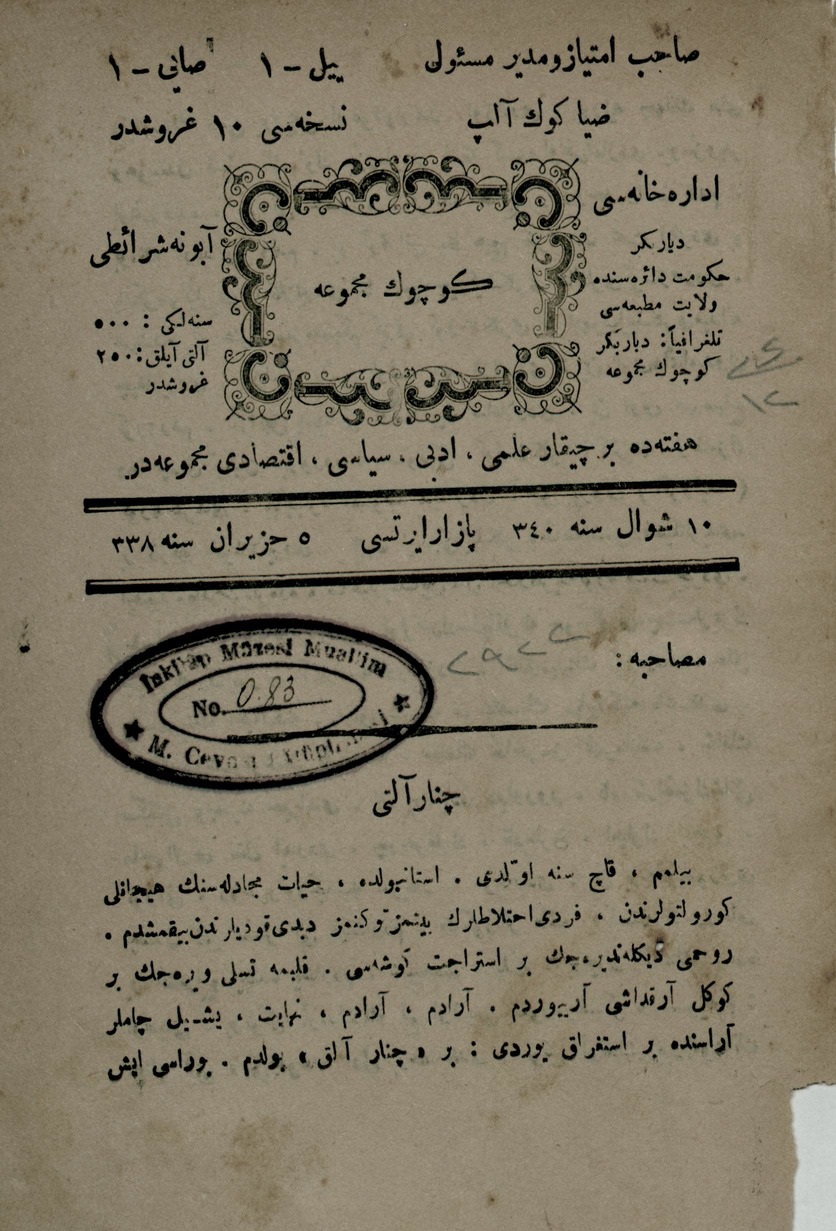 صاحب امتیاز و مدیر مسئول
ییل ـ ١ صائی ـ ١
ضیا کوك آلپ
نسخه‌سی ١٠ غروشدر
اداره‌خانه‌سی
دیاربکر
حکومت دائره‌سنده
ولایت مطبعه‌سی
تلغرافیاً: دیاربکر
کوچوك مجموعه
کوچوك مجموعه
آبونه شرائطی
سنه‌لکی : ٥٠٠
آلتی آیلق: ٢٥٠
غروشدر
هفته‌ده بر چیقار علمی ، ادبی ، سیاسی ، اقتصادی مجموعه‌در
١٠ شوال سنه ٣٤٠ پازار ایرتسی ٥ حزیران سنه ٣٣٨
مصاحبه :
Inkılap Müzesi Muallim
No. 0.83
M. Cev
چنار آلتی
بیلمم ، قاچ سنه اوّلدی . استانبولده ، حیات مجادله‌سنك هیجانلی
کورولتولرندن ، فردی احتلاطارك بیتمز توکنمز دیدی‌قودیلرندن بیقمشدم .
روحمی دیکله‌ندیره‌جك بر استراحت کوشه‌سی . قلبمه تسلی ویره‌جك بر
کوکل آرقداشی آرییوردم . آرادم ، آرادم ، نهایت ، یشیل چاملر
آراسنده بر استغراق یوردی : بر « چنار آلتی » بولدم . بوراسی ایش